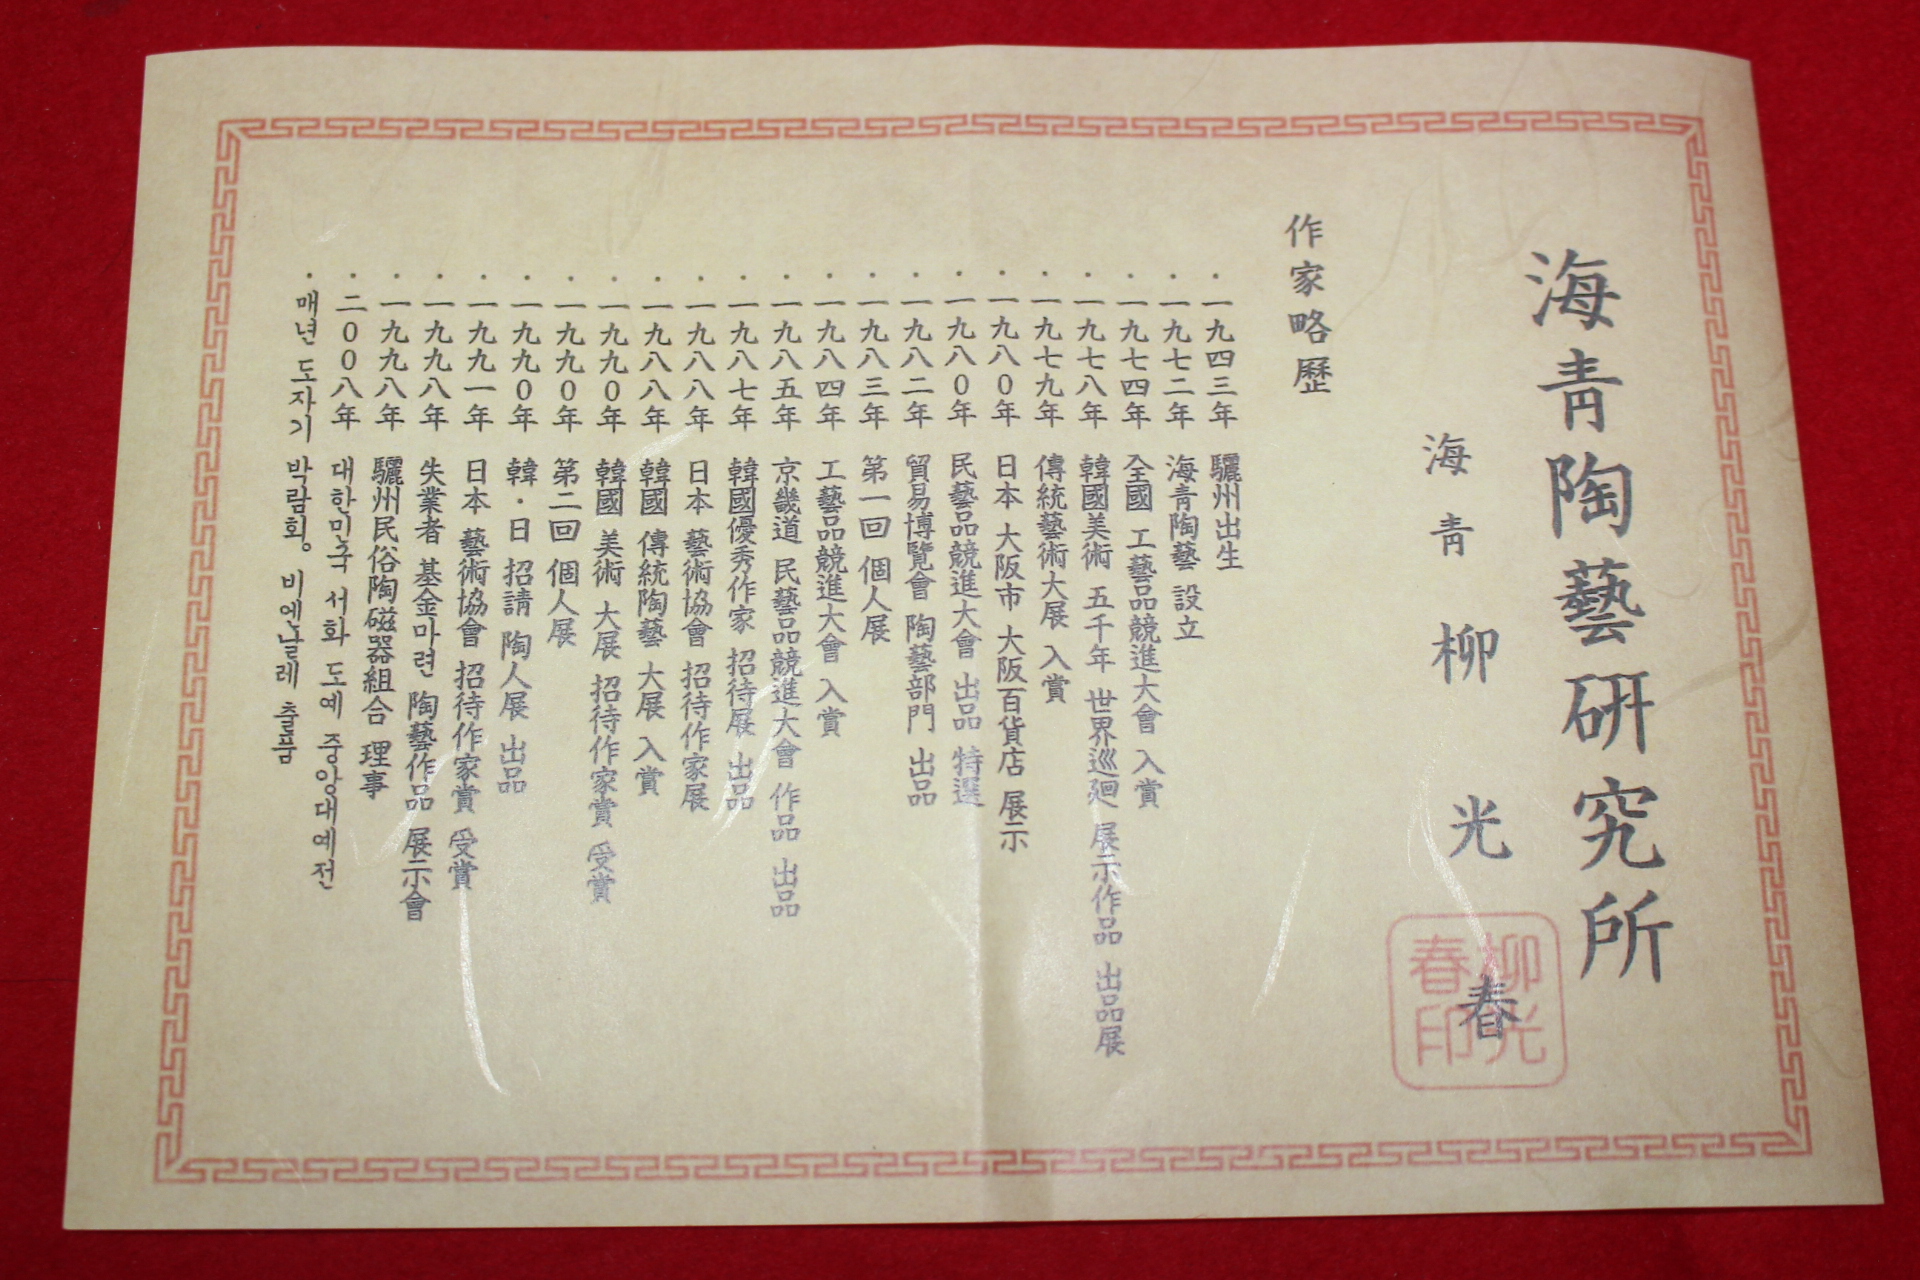 海靑陶藝硏究所
海靑 柳光春
柳光春印
作家略歷
· 一九四三年 驪州出生
· 一九七二年 海靑陶藝 設立
· 一九七四年 全國 工藝品競進大會 入賞
· 一九七八年 韓國美術 五千年 世界巡廻 展示作品 出品展
· 一九七九年 傳統藝術大展 入賞
· 一九八０年 日本 大阪市 大阪百貨店 展示
· 一九八０年 民藝品競進大會 出品 特選
· 一九八二年 貿易博覽會 陶藝部門 出品
· 一九八三年 第一回 個人展
· 一九八四年 工藝品競進大會 入賞
· 一九八五年 京畿道 民藝品競進大會 作品 出品
· 一九八七年 韓國優秀作家 招待展 出品
· 一九八八年 日本 藝術協會 招待作家展
· 一九八八年 韓國 傳統陶藝 大展 入賞
· 一九九０年 韓國 美術 大展 招待作家賞 受賞
· 一九九０年 第二回 個人展
· 一九九０年 韓·日 招請 陶人展 出品
· 一九九一年 日本 藝術協會 招待作家賞 受賞
· 一九九八年 失業者 基金마련 陶藝作品 展示會
· 一九九八年 驪州民俗陶磁器組合 理事
· 二００八年 대한민국 서화 도예 중앙대예전
· 매년 도자기 박람회。비엔날레 출품